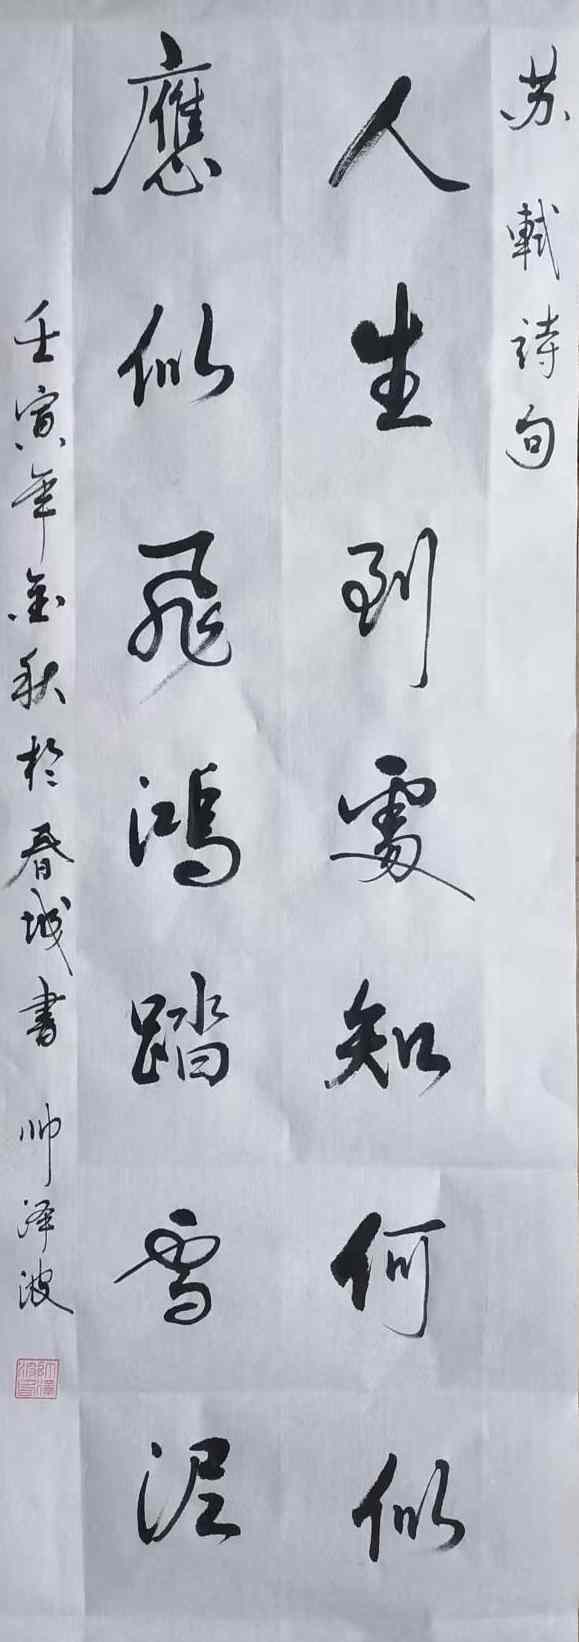 苏軾詩句
人生到處知何似
應似飛鴻踏雪泥
壬寅年金秋於春城書 帅泽波